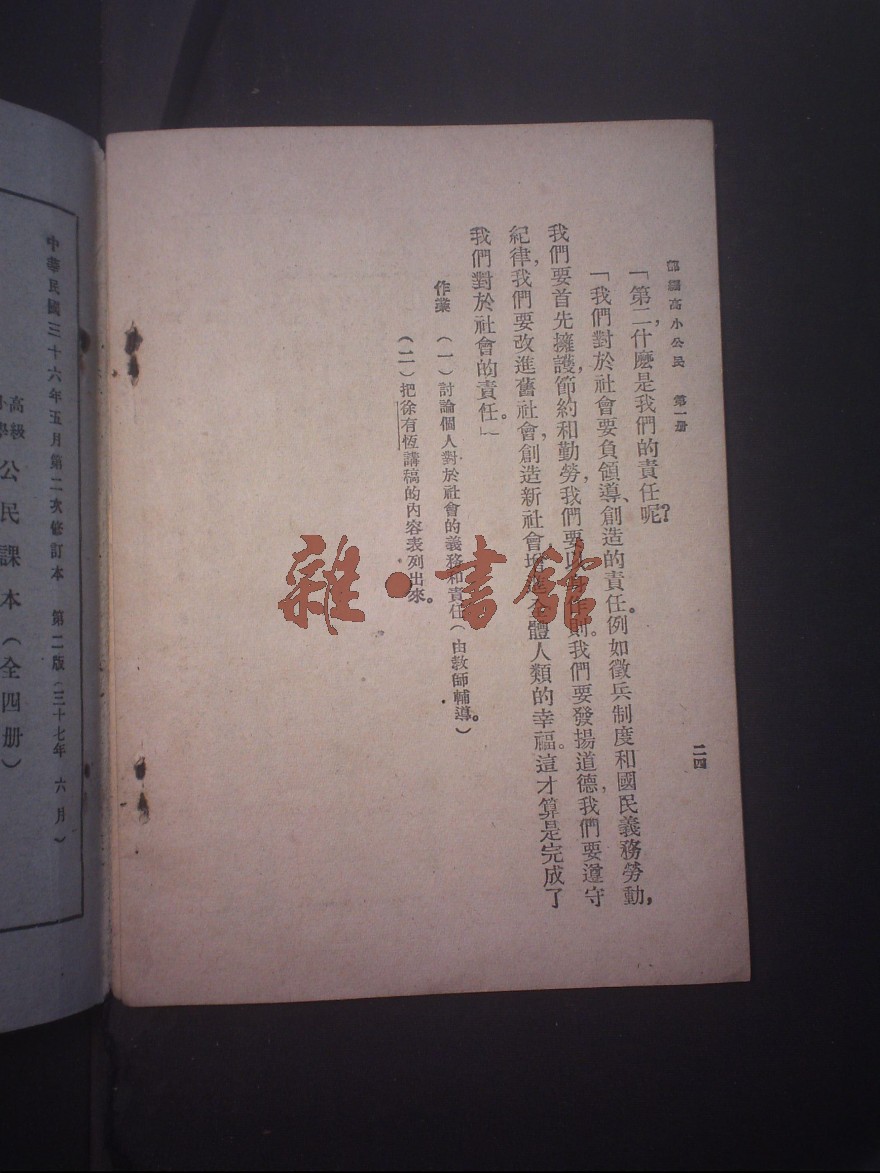 部編高小公民　第一册
二四
「第二，什麽是我們的責任呢？
「我們對於社會要負領導、創造的責任。例如徵兵制度和國民義務勞動，
我們要首先擁護，節約和勤勞，我們要以身作則。我們要發揚道德，我們要遵守
紀律，我們要改進舊社會，創造新社會，增進全體人類的幸福。這才算是完成了
我們對於社會的責任。」
作業　（一）討論個人對於社會的義務和責任（由教師輔導。）
（二）把徐有恆講稿的內容表列出來。
雜·書館
中華民國三十六年五月第二次修訂本　第二版（三十七年六月）
高級
小學
公民課本（全四册）